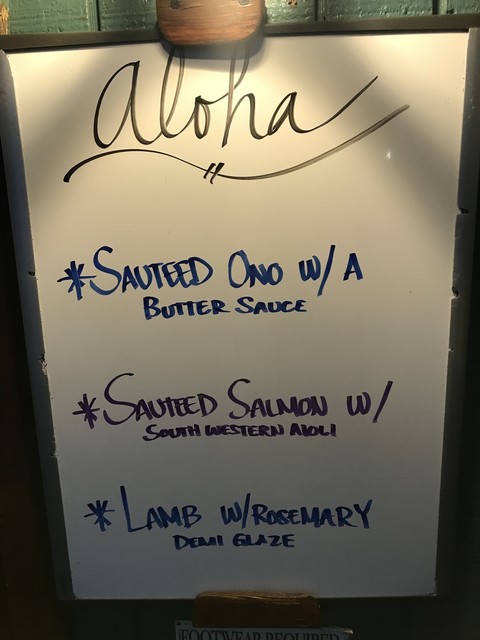 Aloha
*SAUTEED ONO W/ A
BUTTER SAUCE
*SAUTEED SALMON W/
SOUTH WESTERN AIOLI
*LAMB W/ROSEMARY
DEMI GLAZE
FOOTWEAR REQUIRED